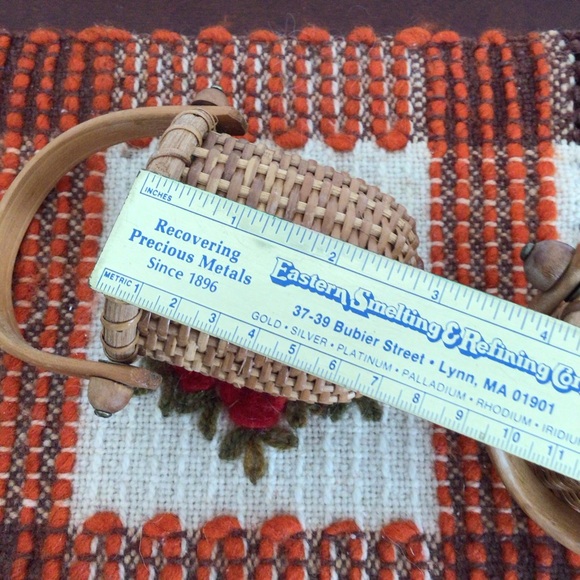 INCHES 1 2 3 4
Recovering
Precious Metals
Since 1896
Eastern Smelting & Refining Co
37-39 Bubier Street • Lynn, MA 01901
GOLD • SILVER • PLATINUM • PALLADIUM • RHODIUM • IRIDIU
METRIC 1 2 3 4 5 6 7 8 9 10 11